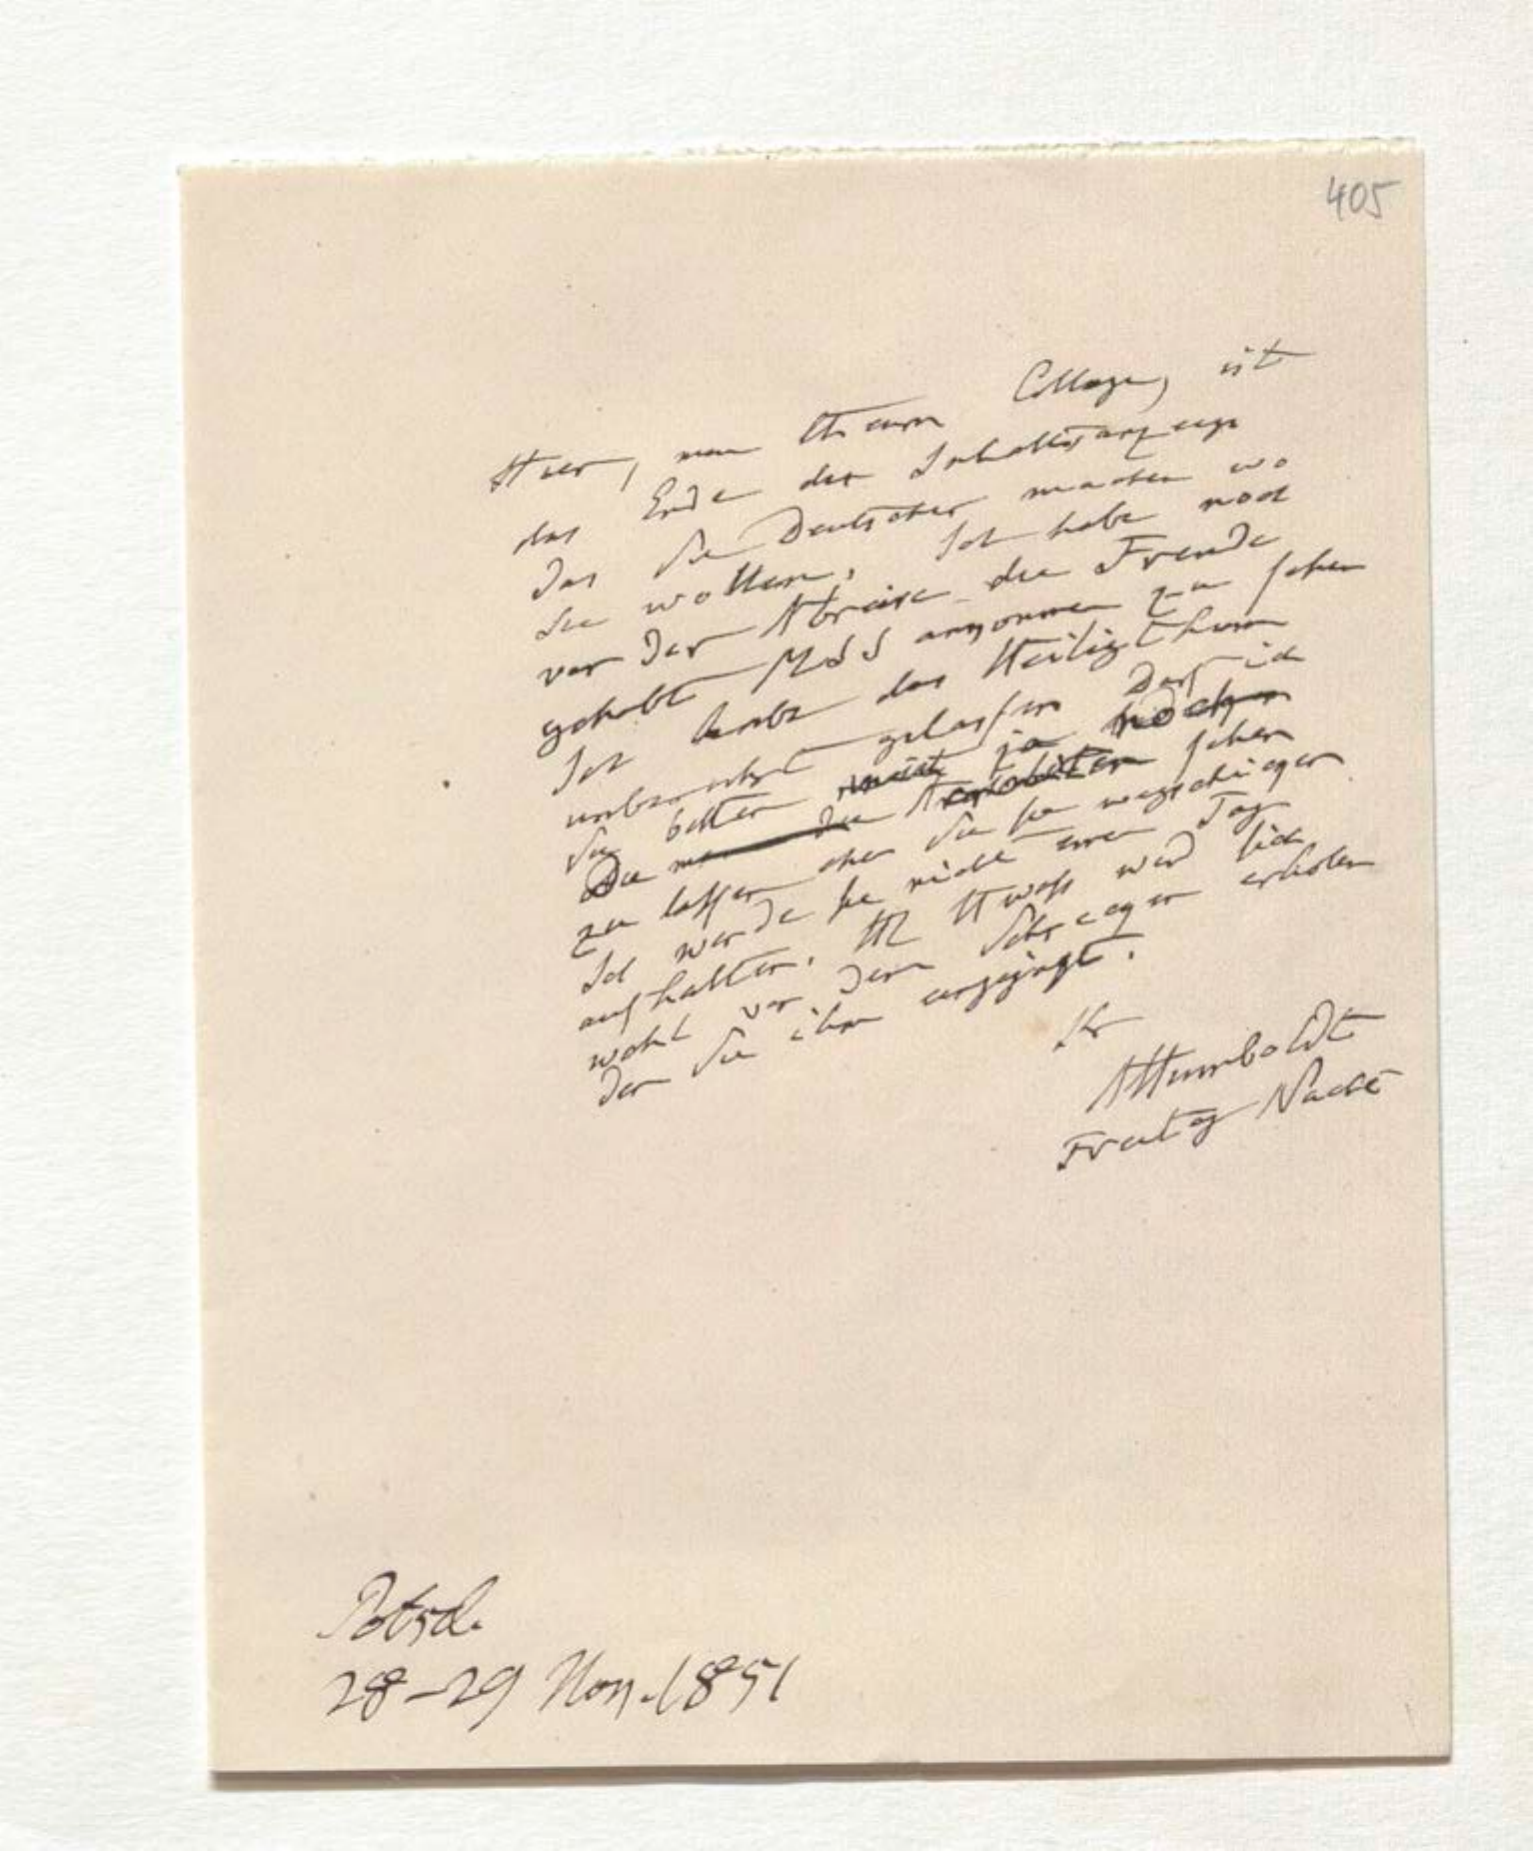 405
Hier, mein theurer College, ist
das Ende der Inhaltsanzeige
das Sie Deutscher machen wo
Sie wollen. Ich habe noch
vor der Abreise die Freude
gehabt Mss ankommen zu sehen
Ich habe das Heiligthum
unberührt gelassen Darf ich
Sie bitten nicht ja
Die sehen
zu lassen ehe Sie sie wegschicken
Ich werde sie nicht einen Tag
aufhalten. H wird sich
wohl von dem Schrecken erholen
den Sie ihm eingejagt.
Ihr
AHumboldt
Freitag Nacht
Potsd.
28–29 Nov. 1851